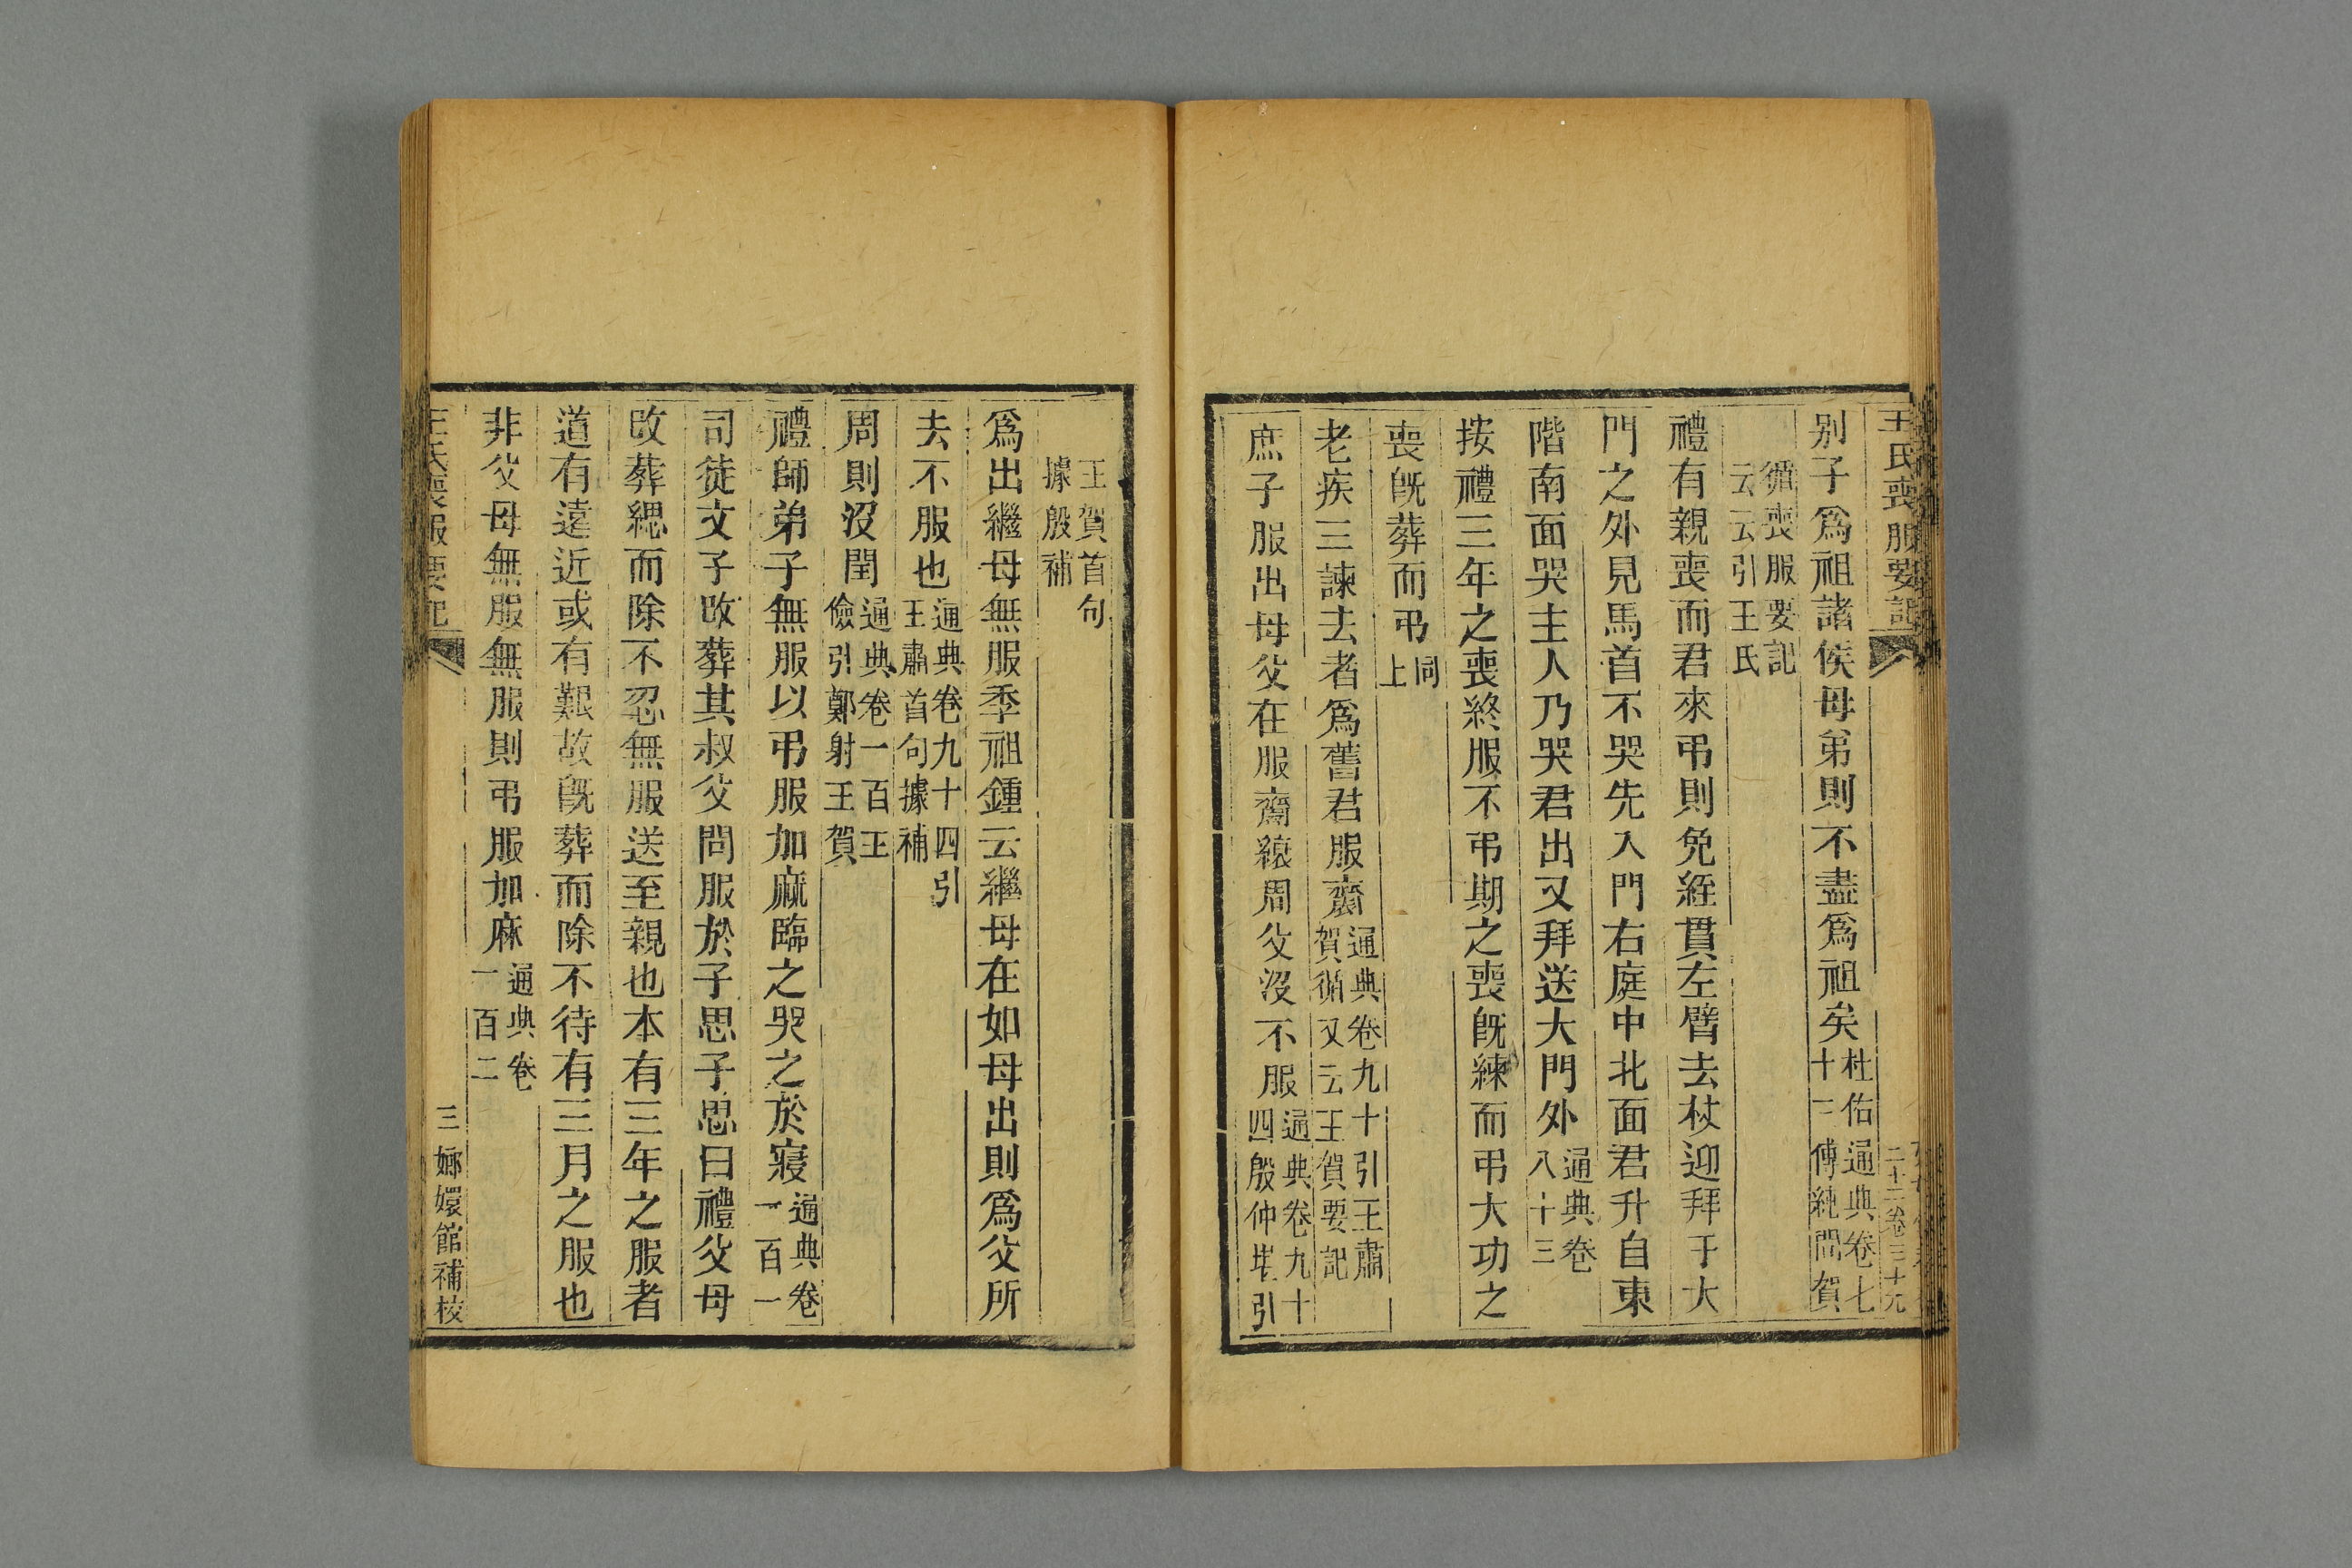 王氏喪服要記
二十二卷三十九
别子爲祖諸侯母弟則不盡爲祖矣杜佑通典卷七十三傅純問賀
循喪服要記云云引王氏
禮有親喪而君來弔則免絰貫左臂去杖迎拜于大
門之外見馬首不哭先入門右庭中北面君升自東
階南面哭主人乃哭君出又拜送大門外通典卷八十三
按禮三年之喪終服不弔期之喪旣練而弔大功之
喪旣葬而弔同上
老疾三諫去者爲舊君服齋通典卷九十引王肅賀循又云王賀要記
庶子服出母父在服齋縗周父沒不服通典卷九十四殷仲堪引
王賀首句據殷補
爲出繼母無服季祖鍾云繼母在如母出則爲父所
去不服也通典卷九十四引王肅首句據補
周則沒閏通典卷一百王儉引鄭射王賀
禮師弟子無服以弔服加麻臨之哭之於寢通典卷一百一
司徒文子改葬其叔父問服於子思子思曰禮父母
改葬緦而除不忍無服送至親也本有三年之服者
道有遠近或有艱故旣葬而除不待有三月之服也
非父母無服無服則弔服加麻通典卷一百二
王氏喪服要記
三
嫏嬛館補校